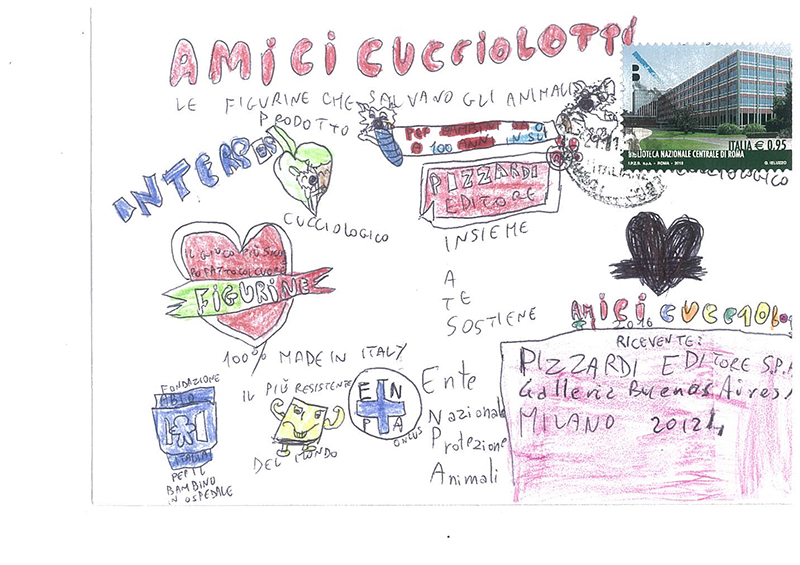 AMICI CUCCIOLOTTI
LE FIGURINE CHE SALVANO GLI ANIMALI
PRODOTTO
PER BAMBINI DA 0
A 100 ANNI IN SU
CUCCIOLOGICO
PIZZARDI
EDITORE
INSIEME
A
TE
SOSTIENE
IL GIOCO PIÙ
FATTO COL CUORE
FIGURINE
100% MADE IN ITALY
FONDAZIONE
ABIO
ITALIA
PER IL
BAMBINO
IN OSPEDALE
IL PIÙ RESISTENTE
DEL MONDO
E N
P A
ONLUS
Ente
Nazionale
Protezione
Animali
B
ITALIA € 0,95
BIBLIOTECA NAZIONALE CENTRALE DI ROMA
I.P.Z.S. S.p.A. - ROMA - 2015
AMICI CUCCIOLO
2016
RICEVENTE:
PIZZARDI EDITORE S.P.A
Galleria Buenos Aires,
MILANO 20124